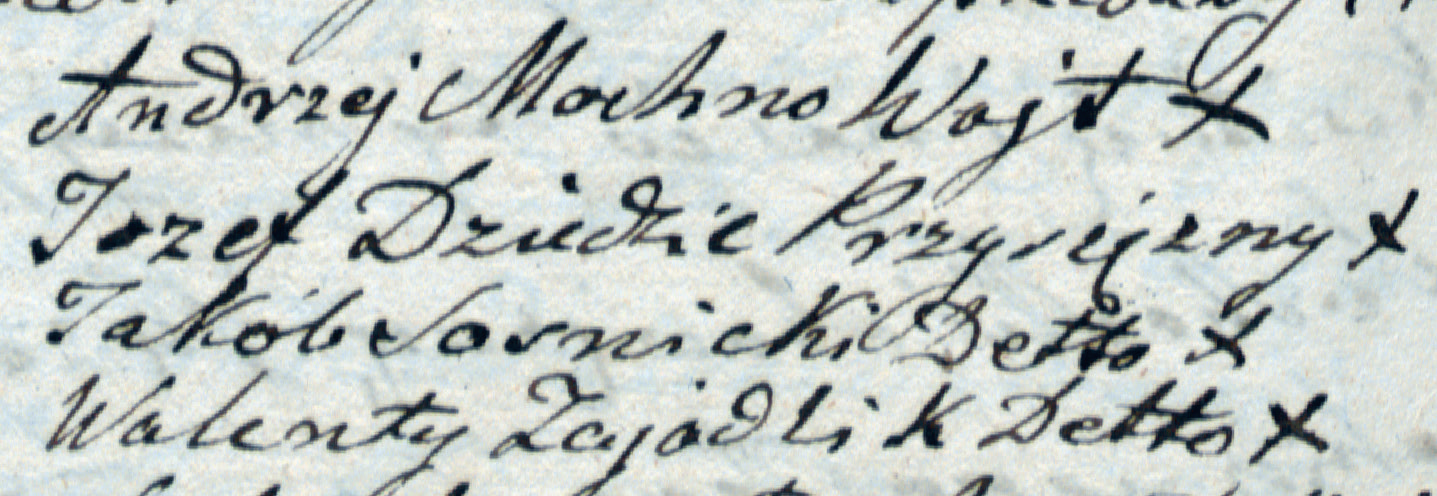 Andrzej Mochno Wojt +
Jozef Dziedzic Przysiężny +
Jakób Sosnicki Detto +
Walenty Zajadlik Detto +